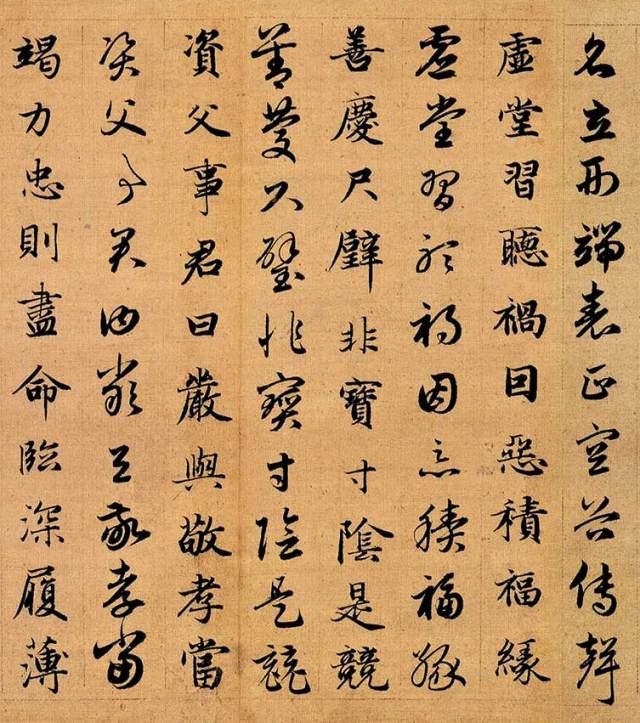 名立形端表正空谷傳聲
虛堂習聽禍因惡積福緣
虛堂習聽禍因惡積福緣
善慶尺璧非寶寸陰是競
善慶尺璧非寶寸陰是競
資父事君曰嚴與敬孝當
資父事君曰嚴與敬孝當
竭力忠則盡命臨深履薄